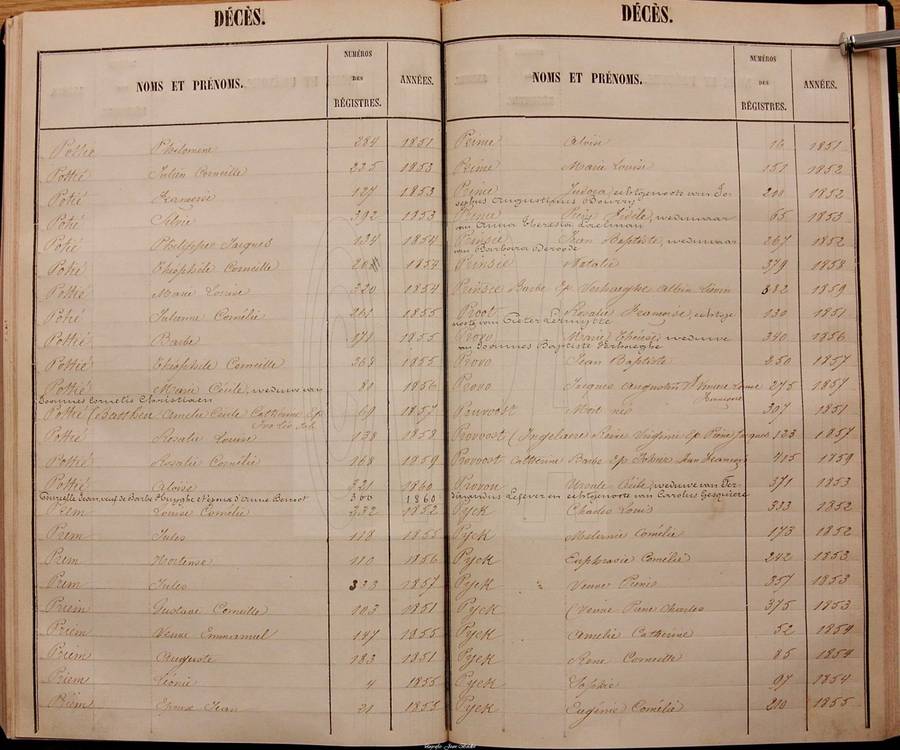 DÉCÈS.
NOMS ET PRÉNOMS. NUMÉROS DES RÉGISTRES. ANNÉES.
Pottié Philomène 284 1851
Pottié Julien Corneille 235 1853
Potié 127 1853
Potié Silvie 392 1853
Potié Philippe Jacques 124 1854
Potié Théophile Corneille 1854
Pottié Marie Louise 220 1854
Potié Julienne Cornélie 261 1855
Pottié Barbe 171 1855
Pottié Théophile Corneille 363 1855
Pottié Marie Cécile, weduwe van 81 1856
Joannes Cornelis Christiaen
Pottié (Battheu Amelie Cécile Catherine Ep 61 1857
Pottié Rosalie Louise 138 1858
Pottié Rosalie Cornélie 168 1859
Pottié Aloïse 321 1860
Jean, veuf de Barbe Huyghe et époux d'Anne Bonnot 300 1860
Prem Louise Cornélie 332 1852
Prem Jules 118 1855
Prem Hortense 110 1856
Prem Jules 333 1857
Priem Gustave Corneille 103 1851
Priem Veuve Emmanuel 147 1855
Priem Auguste 183 1851
Priem Léonie 4 1855
Priem Epoux Jean 21 1855
DÉCÈS.
NOMS ET PRÉNOMS. NUMÉROS DES RÉGISTRES. ANNÉES.
Prime Aloïs 16 1851
Prime Marie Louise 151 1852
Prime echtgenoote van Jo- 208 1852
sephus Augustinus
Prime Fidèle, weduwaar 65 1853
van Anna Theresia
Jean Baptiste, weduwaar 267 1852
van Barbara
Prinsie Natalie 379 1858
Prinsie Barbe Ep Verhaeghe Albin Livin 382 1859
Proot Rosalie echtge- 130 1851
noote van Pieter Lermyttre
Provo Marie Thérèse weduwe 340 1856
van Joannes Baptiste Verhaeghe
Provo Jean Baptiste 250 1857
Provo Jacques Augustin 275 1857
François
Pruvoost Mort né 307 1851
Provoost (Ingelaere Reine Virginie Ep Pierre Jacques 123 1857
Provoost Catherine Barbe Ep Jean François 405 1859
Provou Ursule Cécile, weduwe van Fer- 371 1853
dinandus Lefever en echtgenoote van Carolus Gesquiere
Pyck Charles Louis 333 1852
Pyck Cornélie 173 1852
Pyck Euphrasie Cornélie 242 1853
Pyck Veuve 357 1853
Pyck (Veuve Pierre Charles 375 1853
Pyck Amelie Catherine 52 1854
Pyck René Corneille 85 1854
Pyck Sophie 97 1854
Pyck Eugénie Cornélie 210 1855